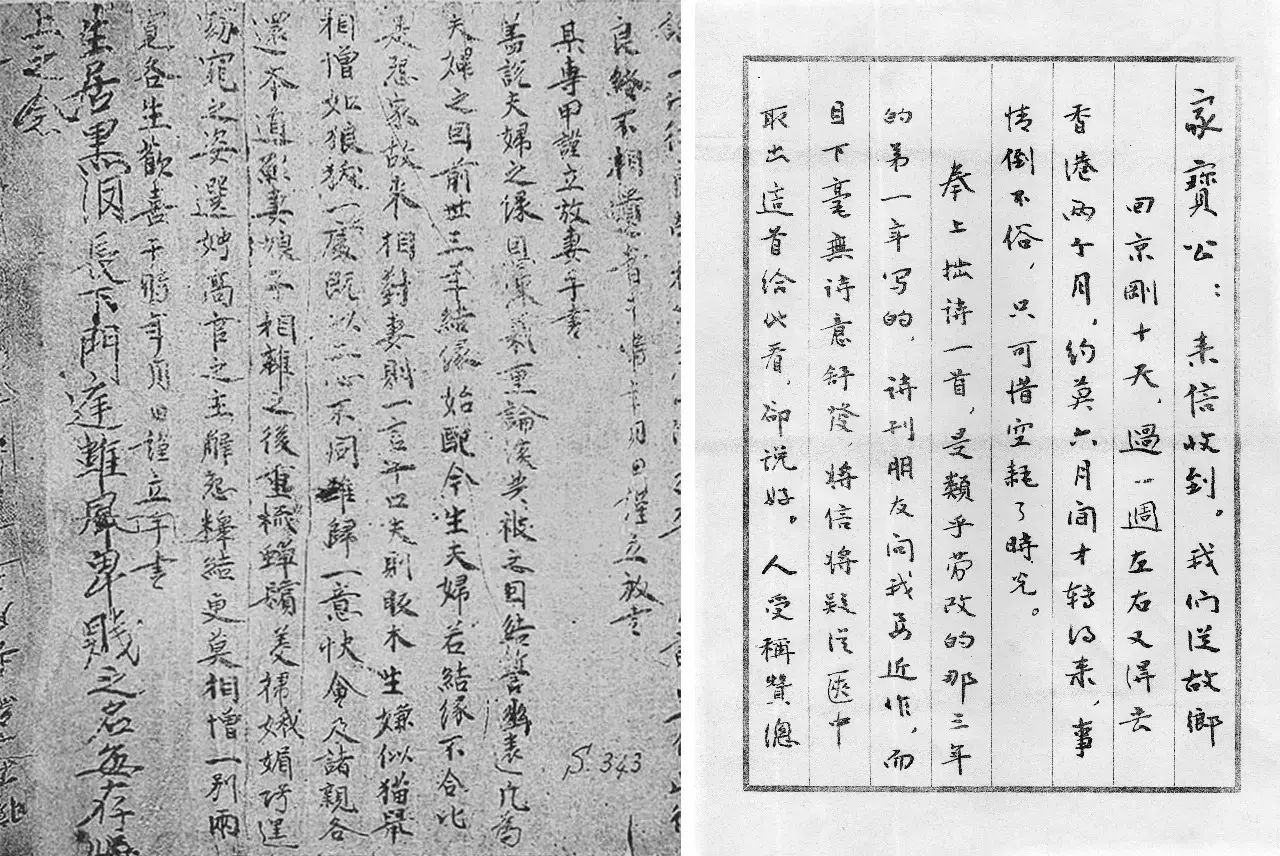 年月日謹立放書
某專甲謹立放妻手書
蓋說夫婦之緣恩深義重論談共被之因結誓幽遠凡為
夫婦之因前世三年結緣始配今生夫婦若結緣不合比
是怨家故來相對妻則一言十口夫則反木生嫌似猫鼠
相憎如狼犺一處既以二心不同難歸一意快會及諸親各
還本道願妻娘子相離之後重梳蟬鬢美掃娥媚巧逞
窈窕之姿選娉高官之主解怨釋結更莫相憎一別兩
寬各生歡喜于時年月日謹立手書
生居黑 長下門逢難 卑賤之名
上之念
S.343
家寶公：来信收到。我们從故鄉
回京剛十天，過一週左右又得去
香港两个月，約莫六月间才转得来，事
情倒不俗，只可惜空耗了時光。
奉上拙诗一首，是類乎劳改的那三年
的第一年写的，诗刊朋友问我要近作，而
目下毫無诗意舒發，将信将疑從匧中
取出這首给他看，卻说好。人受稱贊總